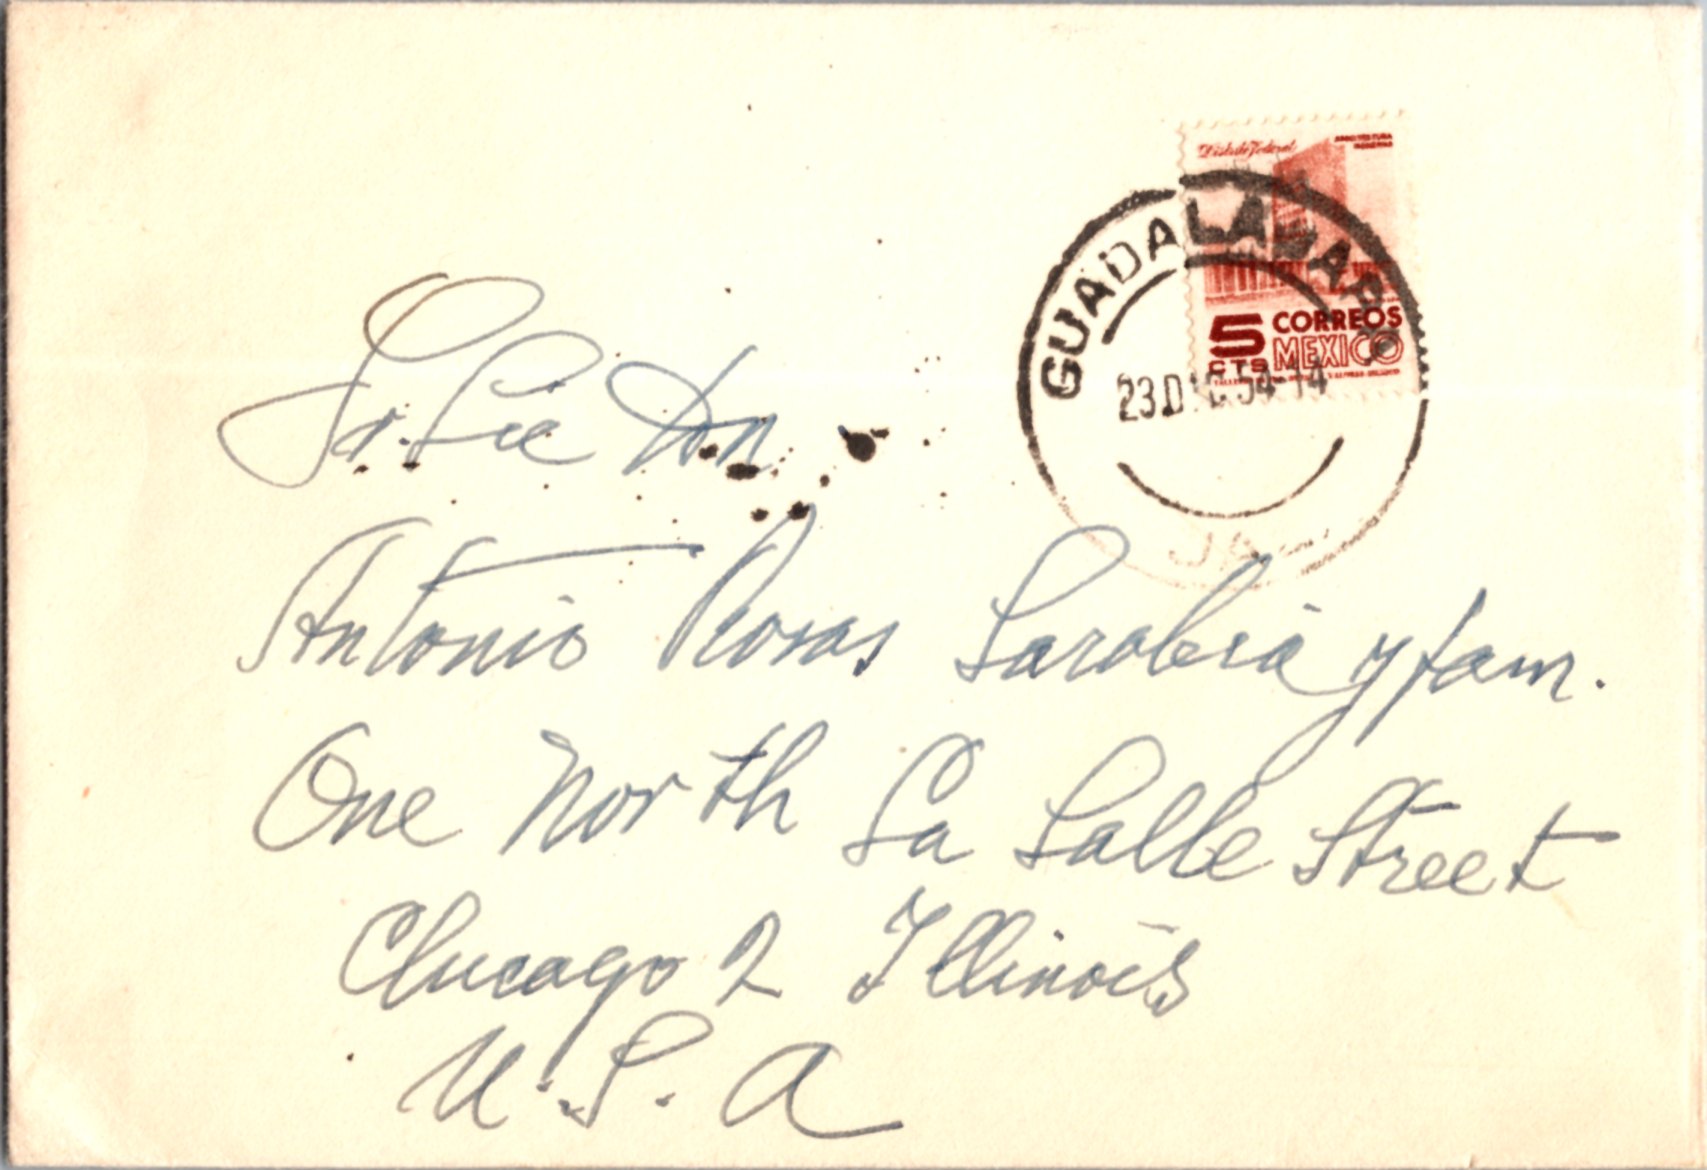 Distrito Federal
ARQUITECTURA
MODERNA
GUADALAJARA
5 CORREOS
CTS MEXICO
23 DIC 54-14
JAL.
Sr. Lic Don
Antonio Rosas Sarabia y fam.
One North La Salle Street
Chicago 2 Illinois
U.S.A